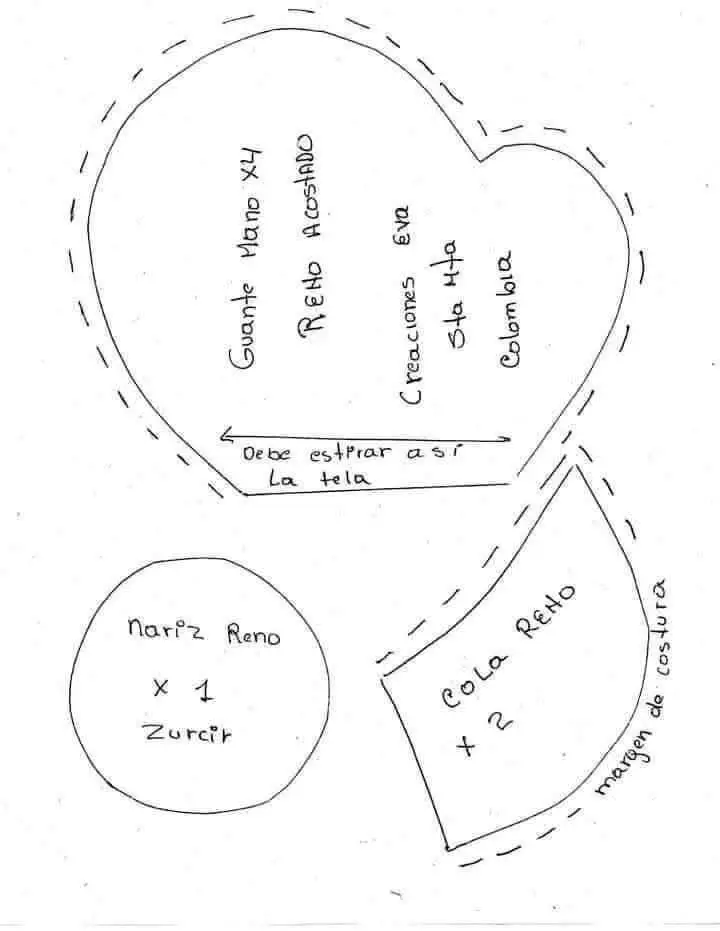 Guante Mano x4
RENO ACostADO
Creaciones Eva
Sta Mta
Colombia
Debe estirar así
La tela
nariz Reno
x 1
Zurcir
COLA RENO
x 2
margen de costura